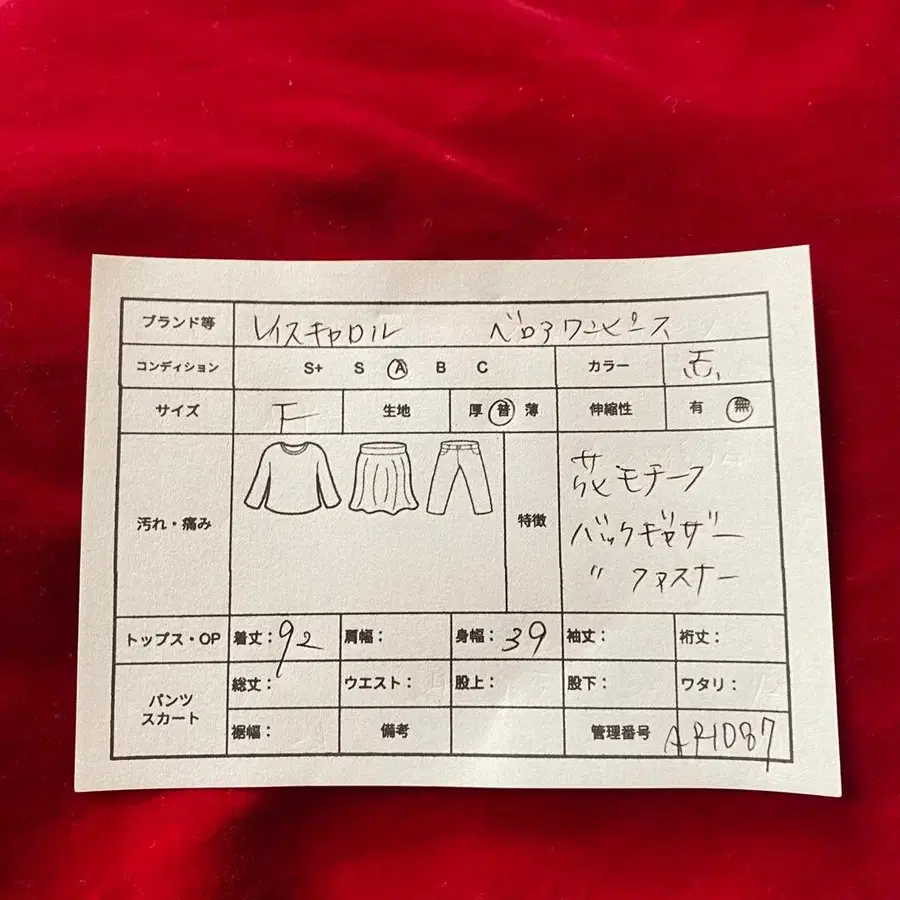 ブランド等 レイスキャロル ベロアワンピース
コンディション S+ S A B C カラー 赤
サイズ F 生地 厚 普 薄 伸縮性 有 無
汚れ・痛み 特徴 花モチーフ
バックギャザー
〃 ファスナー
トップス・OP 着丈：92 肩幅： 身幅：39 袖丈： 裄丈：
パンツ スカート 総丈： ウエスト： 股上： 股下： ワタリ：
裾幅： 備考 管理番号